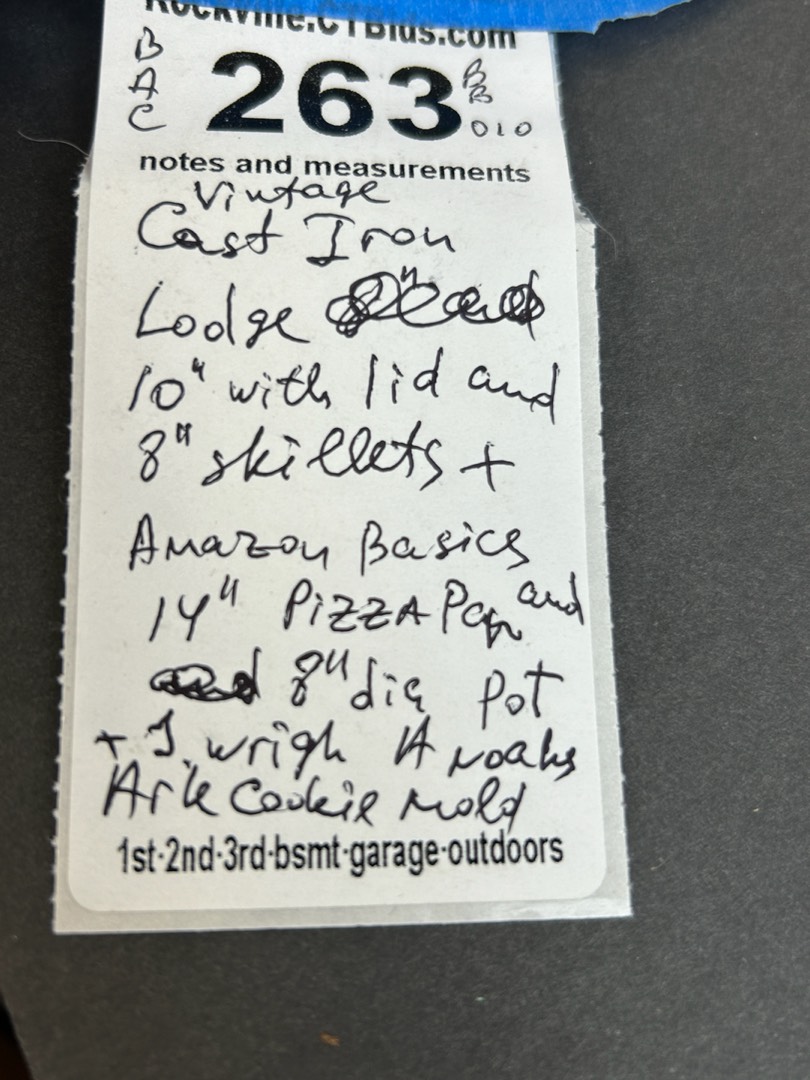 Rockville.CTBids.com
B
A
C
263
B
B
010
notes and measurements
Vintage
Cast Iron
Lodge
10" with lid and
8" skillets +
Amazon Basics
14" PIZZA Pan and
8" dia Pot
+ J. wrigh
Noahs
Ark Cookie Mold
1st-2nd-3rd-bsmt-garage-outdoors